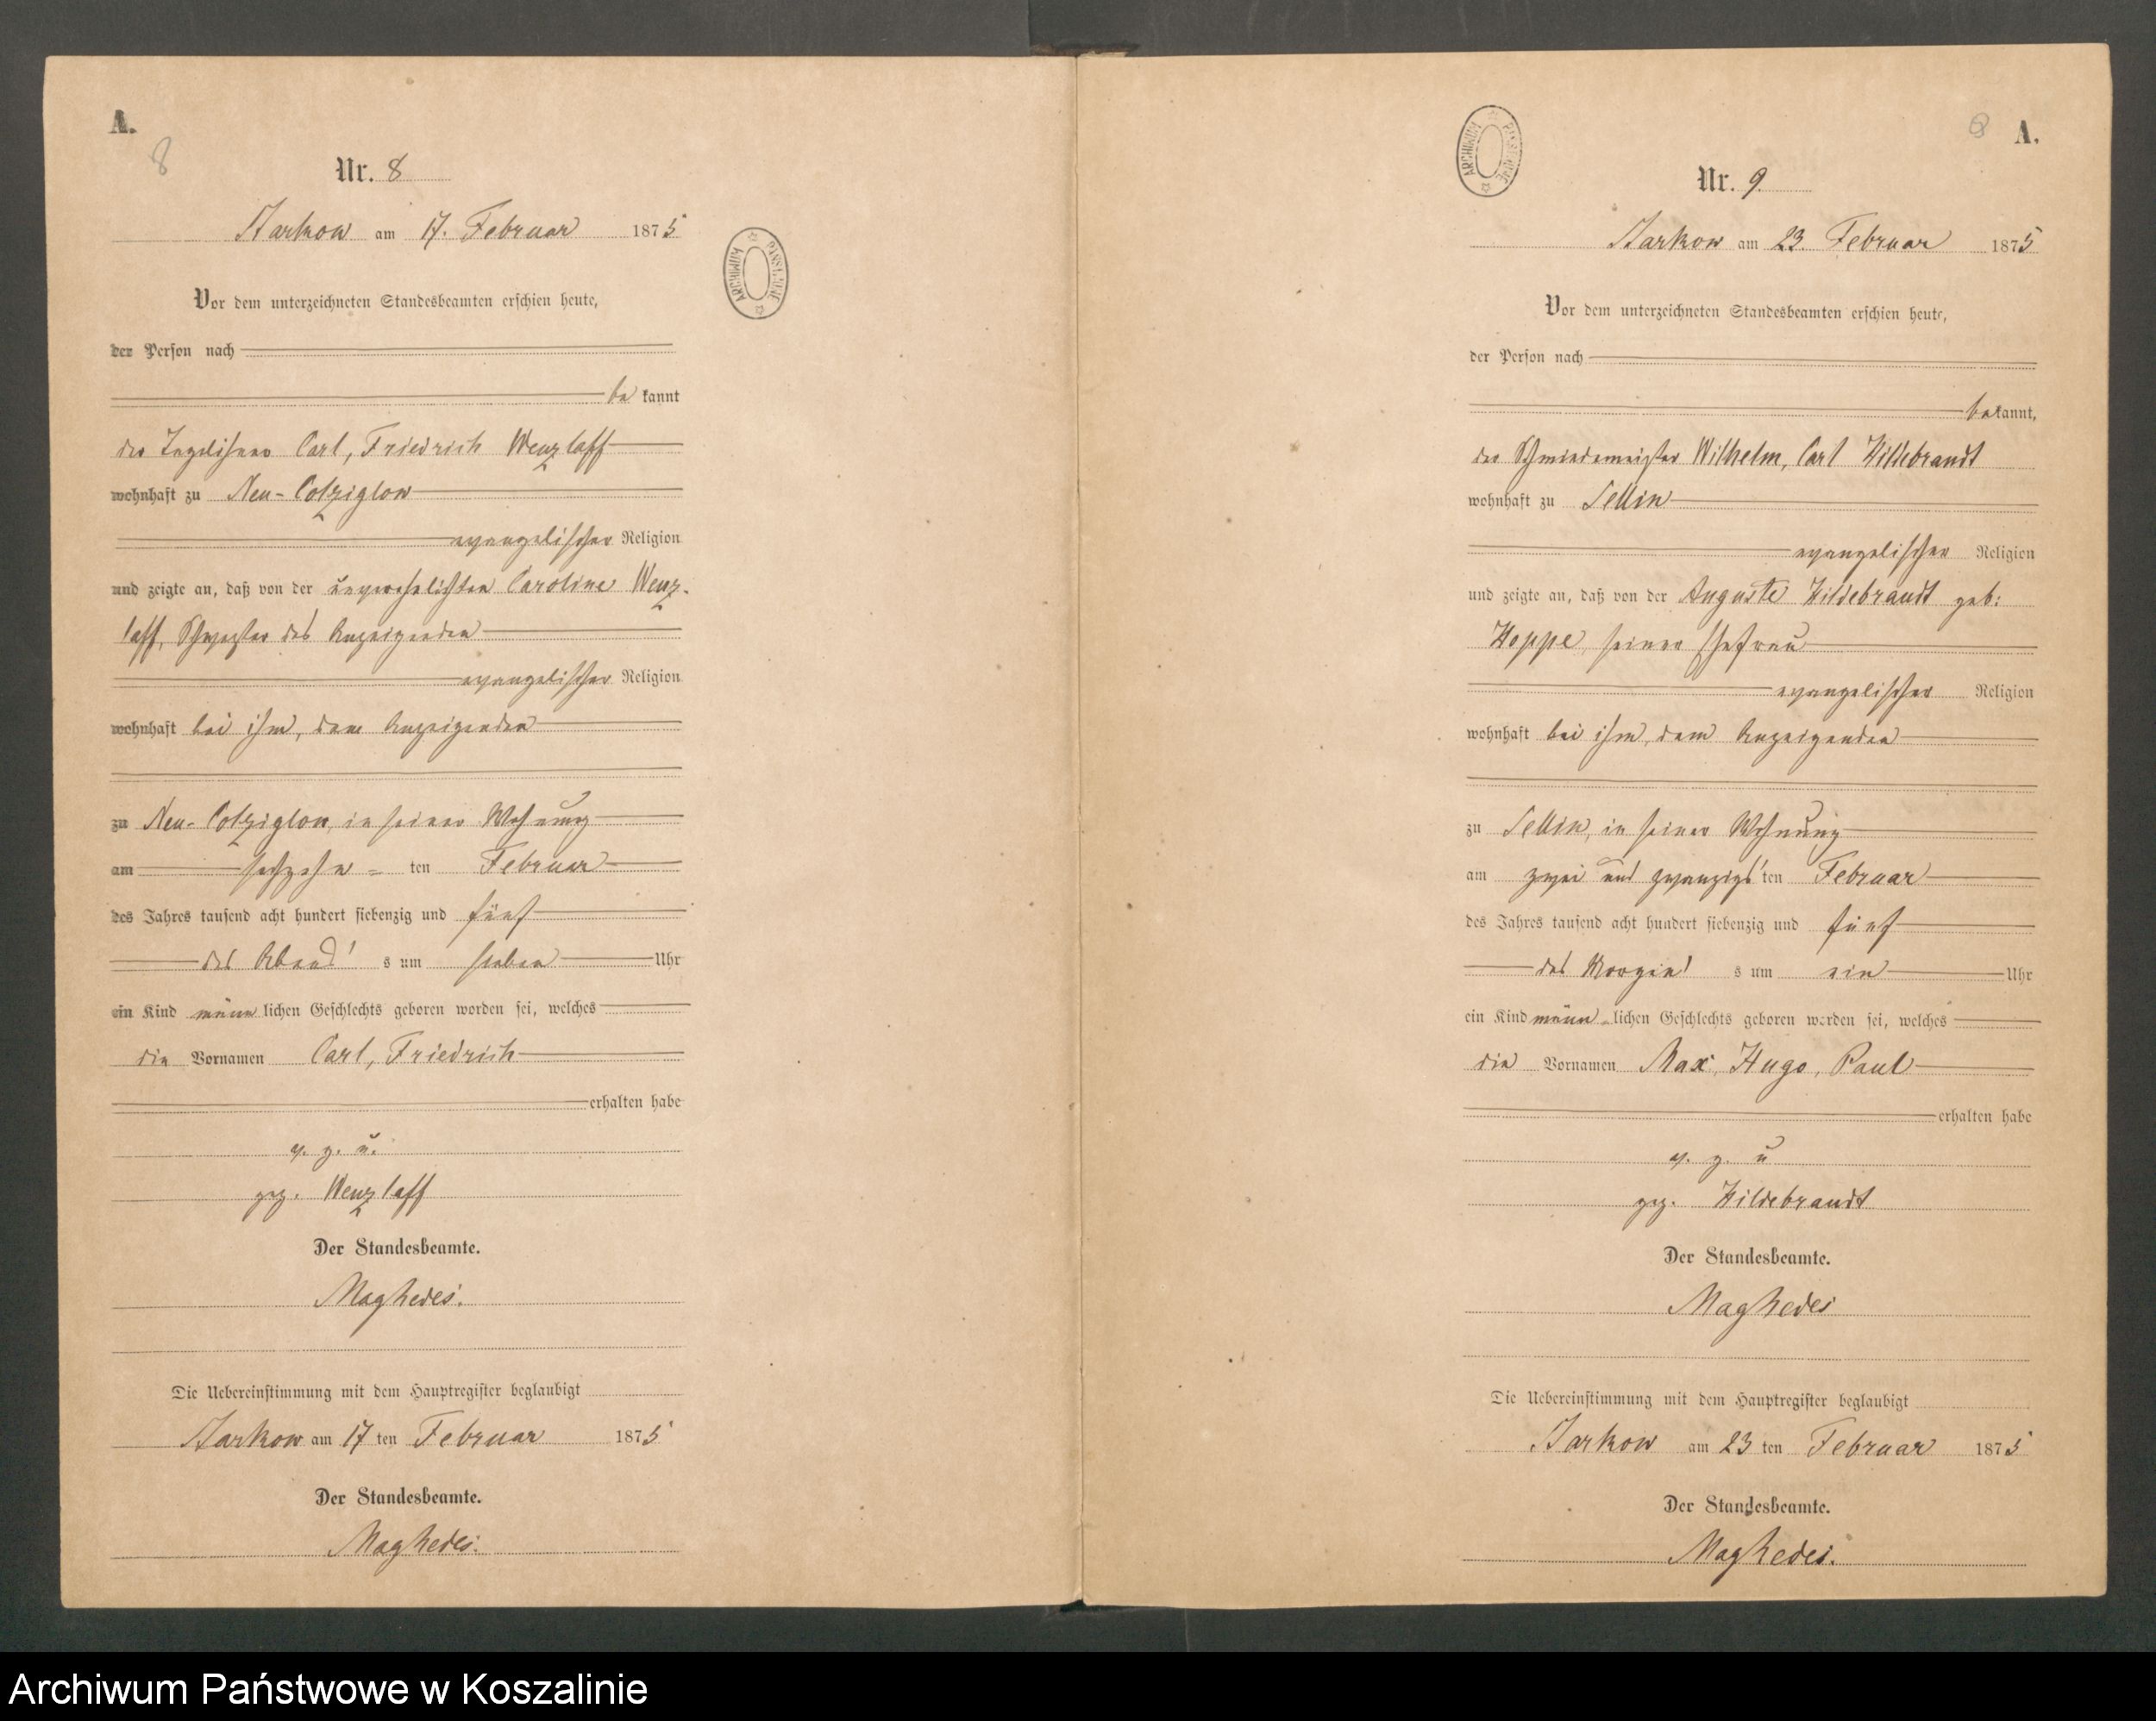 A.
8
Nr. 8
Starkow am 17. Februar 1875
ARCHIWUM PAŃSTWOWE
Vor dem unterzeichneten Standesbeamten erschien heute,
der Person nach
be kannt
der Tagelöhner Carl, Friedrich Wenzlaff
wohnhaft zu Neu-Colziglow
evangelischer Religion
und zeigte an, daß von der unverehelichten Caroline Wenz-
laff, Schwester des Anzeigenden
evangelischer Religion
wohnhaft bei ihm, dem Anzeigenden
zu Neu-Colziglow, in seiner Wohnung
am sechzehn = ten Februar
des Jahres tausend acht hundert siebenzig und fünf
des Abend s um sieben Uhr
ein Kind männ lichen Geschlechts geboren worden sei, welches
die Vornamen Carl, Friedrich
erhalten habe
v. g. u.
gez. Wenzlaff
Der Standesbeamte.
Die Uebereinstimmung mit dem Hauptregister beglaubigt
Starkow am 17 ten Februar 1875
Der Standesbeamte.
A.
Nr. 9.
Starkow am 23. Februar 1875
ARCHIWUM PAŃSTWOWE
Vor dem unterzeichneten Standesbeamten erschien heute,
der Person nach
bekannt,
der Schmiedemeister Wilhelm, Carl Hildebrandt
wohnhaft zu Sellin
evangelischer Religion
und zeigte an, daß von der Auguste Hildebrandt geb:
Hoppe, seiner Ehefrau
evangelischer Religion
wohnhaft bei ihm, dem Anzeigenden
zu Sellin, in seiner Wohnung
am zwei und zwanzigs ten Februar
des Jahres tausend acht hundert siebenzig und fünf
des Morgen s um ein Uhr
ein Kind männ lichen Geschlechts geboren worden sei, welches
die Vornamen Max, Hugo, Paul
erhalten habe
v. g. u
gez. Hildebrandt
Der Standesbeamte.
Die Uebereinstimmung mit dem Hauptregister beglaubigt
Starkow am 23 ten Februar 1875
Der Standesbeamte.
Archiwum Państwowe w Koszalinie